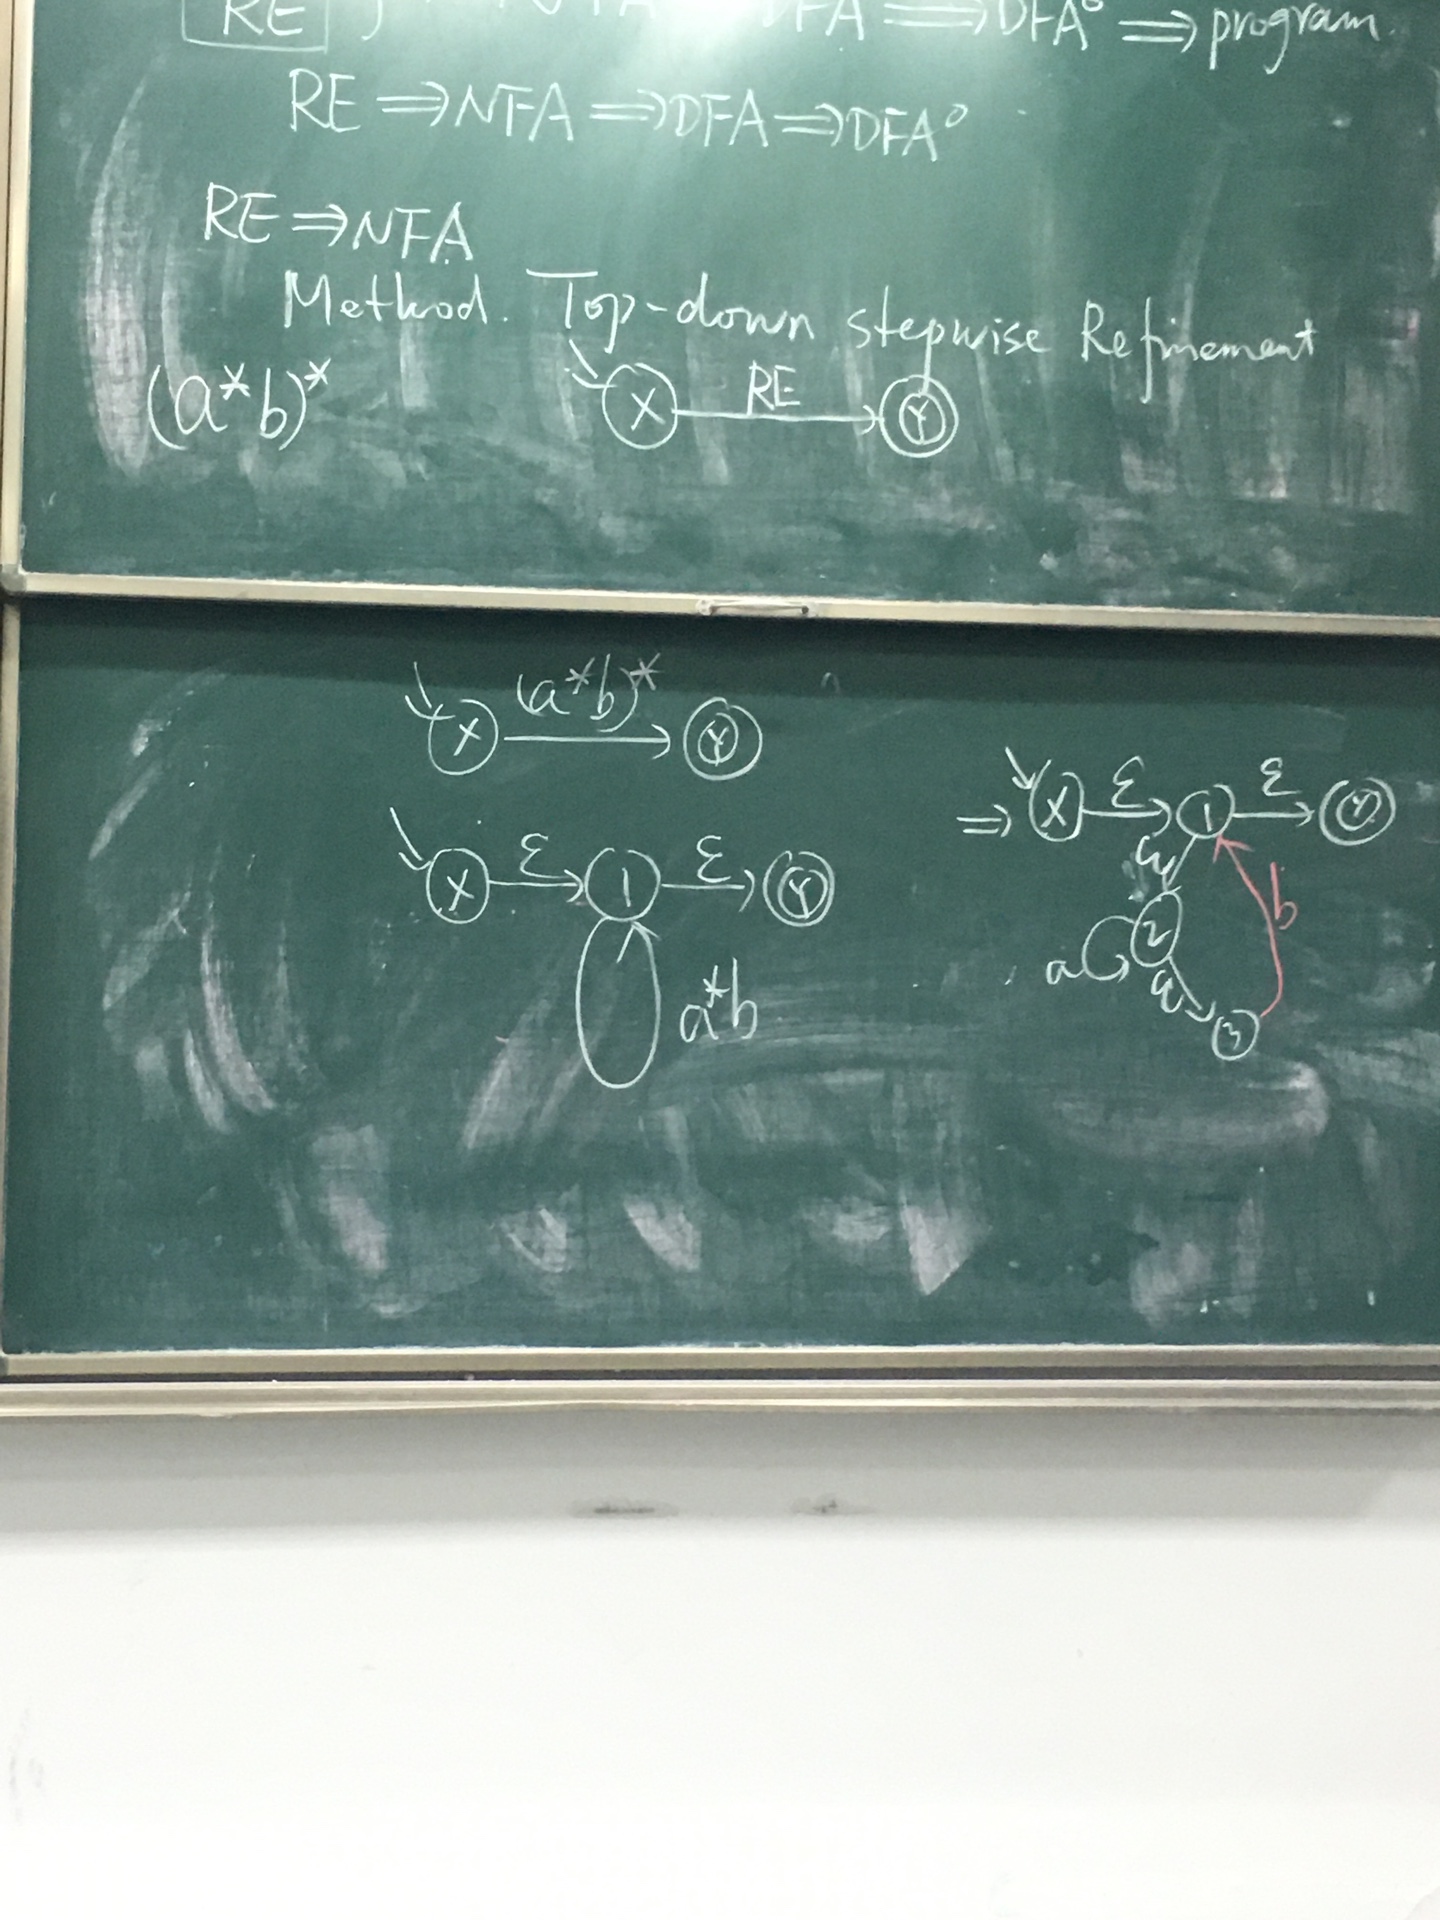 RE NFA DFA ⇒ DFA⁰ ⇒ program.
RE ⇒ NFA ⇒ DFA ⇒ DFA⁰
RE ⇒ NFA
Method. Top-down stepwise Refinement
(a*b)*
X RE Y
X (a*b)* Y
X ε 1 ε Y
a*b
⇒ X ε 1 ε Y
ε
b
2
a
ε
3